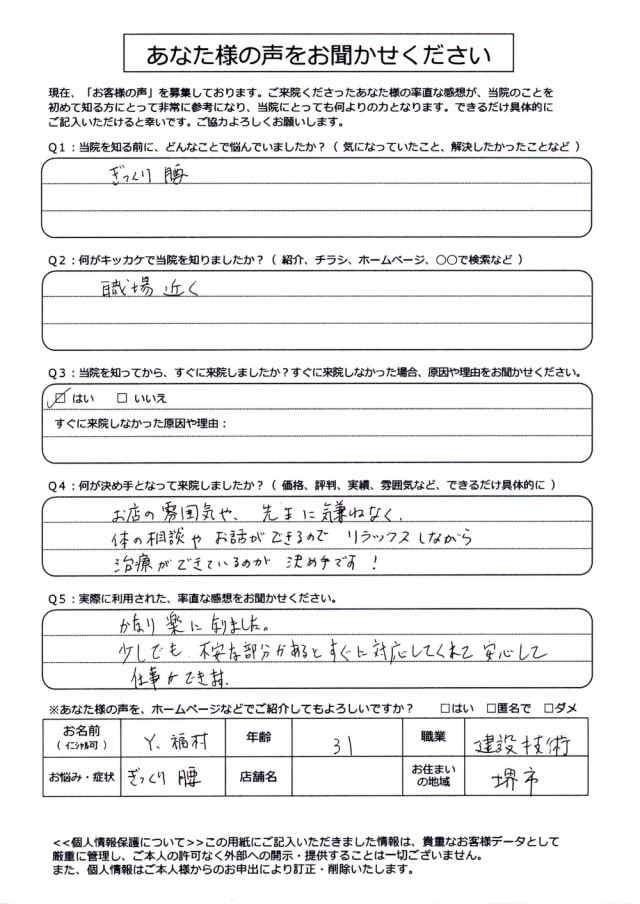 あなた様の声をお聞かせください
現在、「お客様の声」を募集しております。ご来院くださったあなた様の率直な感想が、当院のことを
初めて知る方にとって非常に参考になり、当院にとっても何よりの力となります。できるだけ具体的に
ご記入いただけると幸いです。ご協力よろしくお願いします。
Q1：当院を知る前に、どんなことで悩んでいましたか？（ 気になっていたこと、解決したかったことなど ）
ぎっくり腰
Q2：何がキッカケで当院を知りましたか？（ 紹介、チラシ、ホームページ、〇〇で検索など ）
職場近く
Q3：当院を知ってから、すぐに来院しましたか？すぐに来院しなかった場合、原因や理由をお聞かせください。
☑ はい □ いいえ
すぐに来院しなかった原因や理由：
Q4：何が決め手となって来院しましたか？（ 価格、評判、実績、雰囲気など、できるだけ具体的に ）
お店の雰囲気や、先生に気兼ねなく、
体の相談やお話ができるので リラックスしながら
治療ができているのが 決め手です！
Q5：実際に利用された、率直な感想をお聞かせください。
かなり楽になりました。
少しでも 不安な部分があるとすぐに対応してくれて 安心して
仕事ができます。
※あなた様の声を、ホームページなどでご紹介してもよろしいですか？ □はい □匿名で □ダメ
お名前 Y、福村 年齢 31 職業 建設技術
（ｲﾆｼｬﾙ可）
お悩み・症状 ぎっくり腰 店舗名 お住まいの地域 堺市
<<個人情報保護について>>この用紙にご記入いただきました情報は、貴重なお客様データとして
厳重に管理し、ご本人の許可なく外部への開示・提供することは一切ございません。
また、個人情報はご本人様からのお申出により訂正・削除いたします。